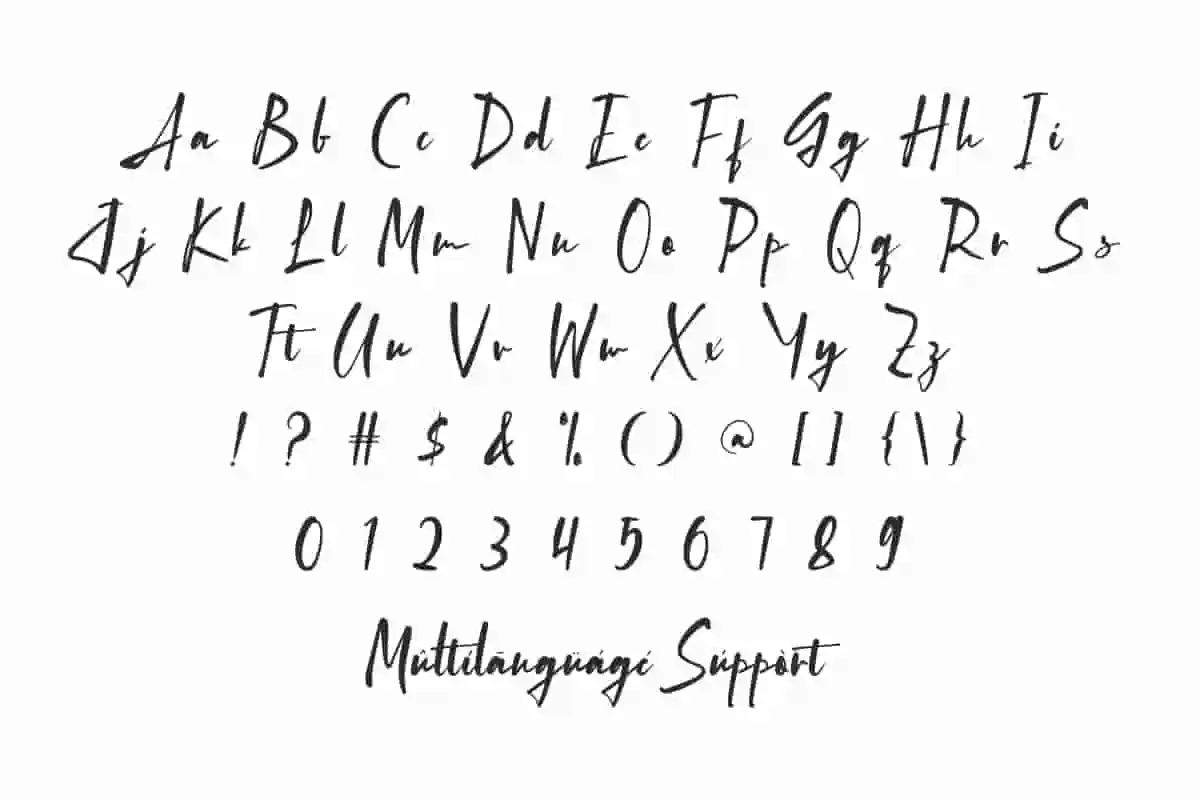 Aa Bb Cc Dd Ee Ff Gg Hh Ii
Jj Kk Ll Mm Nn Oo Pp Qq Rr Ss
Tt Uu Vv Ww Xx Yy Zz
! ? # $ & % ( ) @ [ ] { \ }
0 1 2 3 4 5 6 7 8 9
Mûttílãngüágé Súppòrt